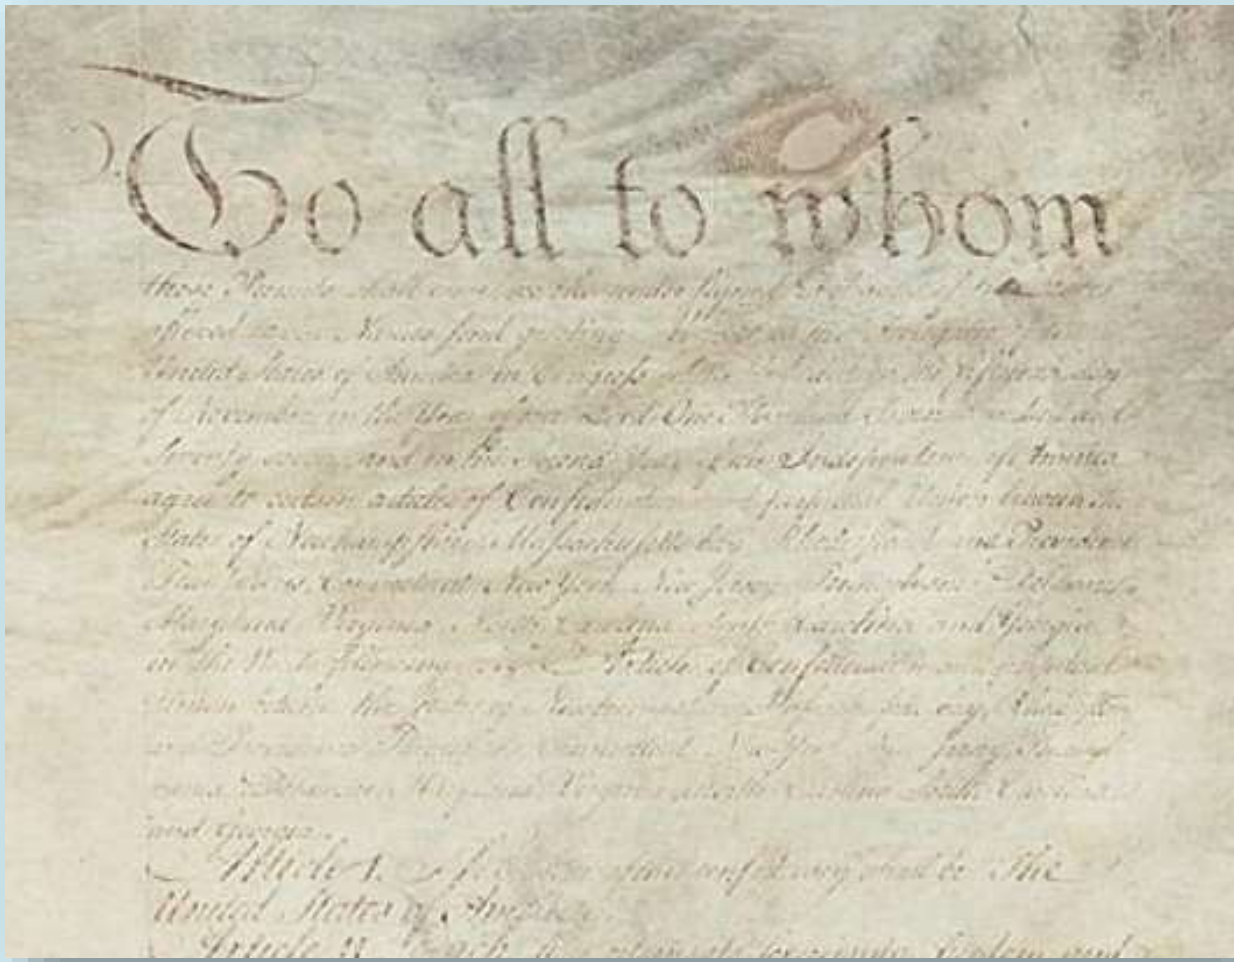 To all to whom
these Presents shall come, we the under signed Delegates of the States
affixed to our Names send greeting. Whereas the Delegates of the
United States of America in Congress assembled did on the fifteenth day
of November in the Year of our Lord One Thousand Seven Hundred and
Seventy seven, and in the Second Year of the Independence of America
agree to certain articles of Confederation and perpetual Union between the
States of Newhampshire, Massachusetts-bay, Rhodeisland and Providence
Plantations, Connecticut, New York, New Jersey, Pennsylvania, Delaware,
Maryland, Virginia, North-Carolina, South-Carolina and Georgia
in the Words following, viz. Articles of Confederation and perpetual
Union between the States of Newhampshire, Massachusetts-bay, Rhodeisland
and Providence Plantations, Connecticut, New-York, New-Jersey, Pennsyl
vania, Delaware, Maryland, Virginia, North-Carolina, South-Carolina
and Georgia.
Article I. The Stile of this confederacy shall be "The
United States of America."
Article II. Each state retains its sovereignty, freedom and